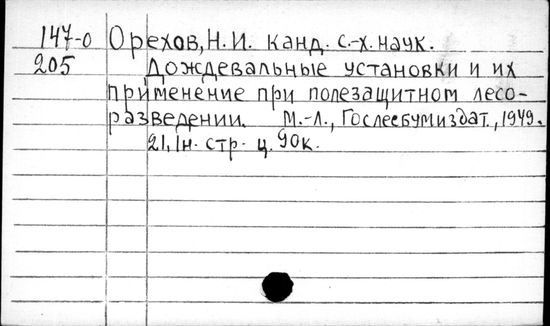 147-о Орехов, Н.И. канд. с.-х. наук.
205 Дождевальные установки и их
применение при полезащитном лесо-
разведении. М.-Л., Гослесбумиздат., 1949.
21, 1н. стр. ц. 90к.